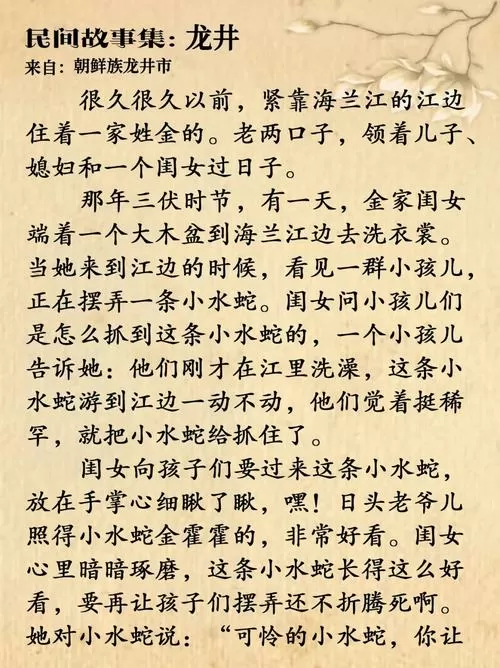 民间故事集：龙井
来自：朝鲜族龙井市
很久很久以前，紧靠海兰江的江边
住着一家姓金的。老两口子，领着儿子、
媳妇和一个闺女过日子。
那年三伏时节，有一天，金家闺女
端着一个大木盆到海兰江边去洗衣裳。
当她来到江边的时候，看见一群小孩儿，
正在摆弄一条小水蛇。闺女问小孩儿们
是怎么抓到这条小水蛇的，一个小孩儿
告诉她：他们刚才在江里洗澡，这条小
水蛇游到江边一动不动，他们觉着挺稀
罕，就把小水蛇给抓住了。
闺女向孩子们要过来这条小水蛇，
放在手掌心细瞅了瞅，嘿！日头老爷儿
照得小水蛇金霍霍的，非常好看。闺女
心里暗暗琢磨，这条小水蛇长得这么好
看，要再让孩子们摆弄还不折腾死啊。
她对小水蛇说：“可怜的小水蛇，你让